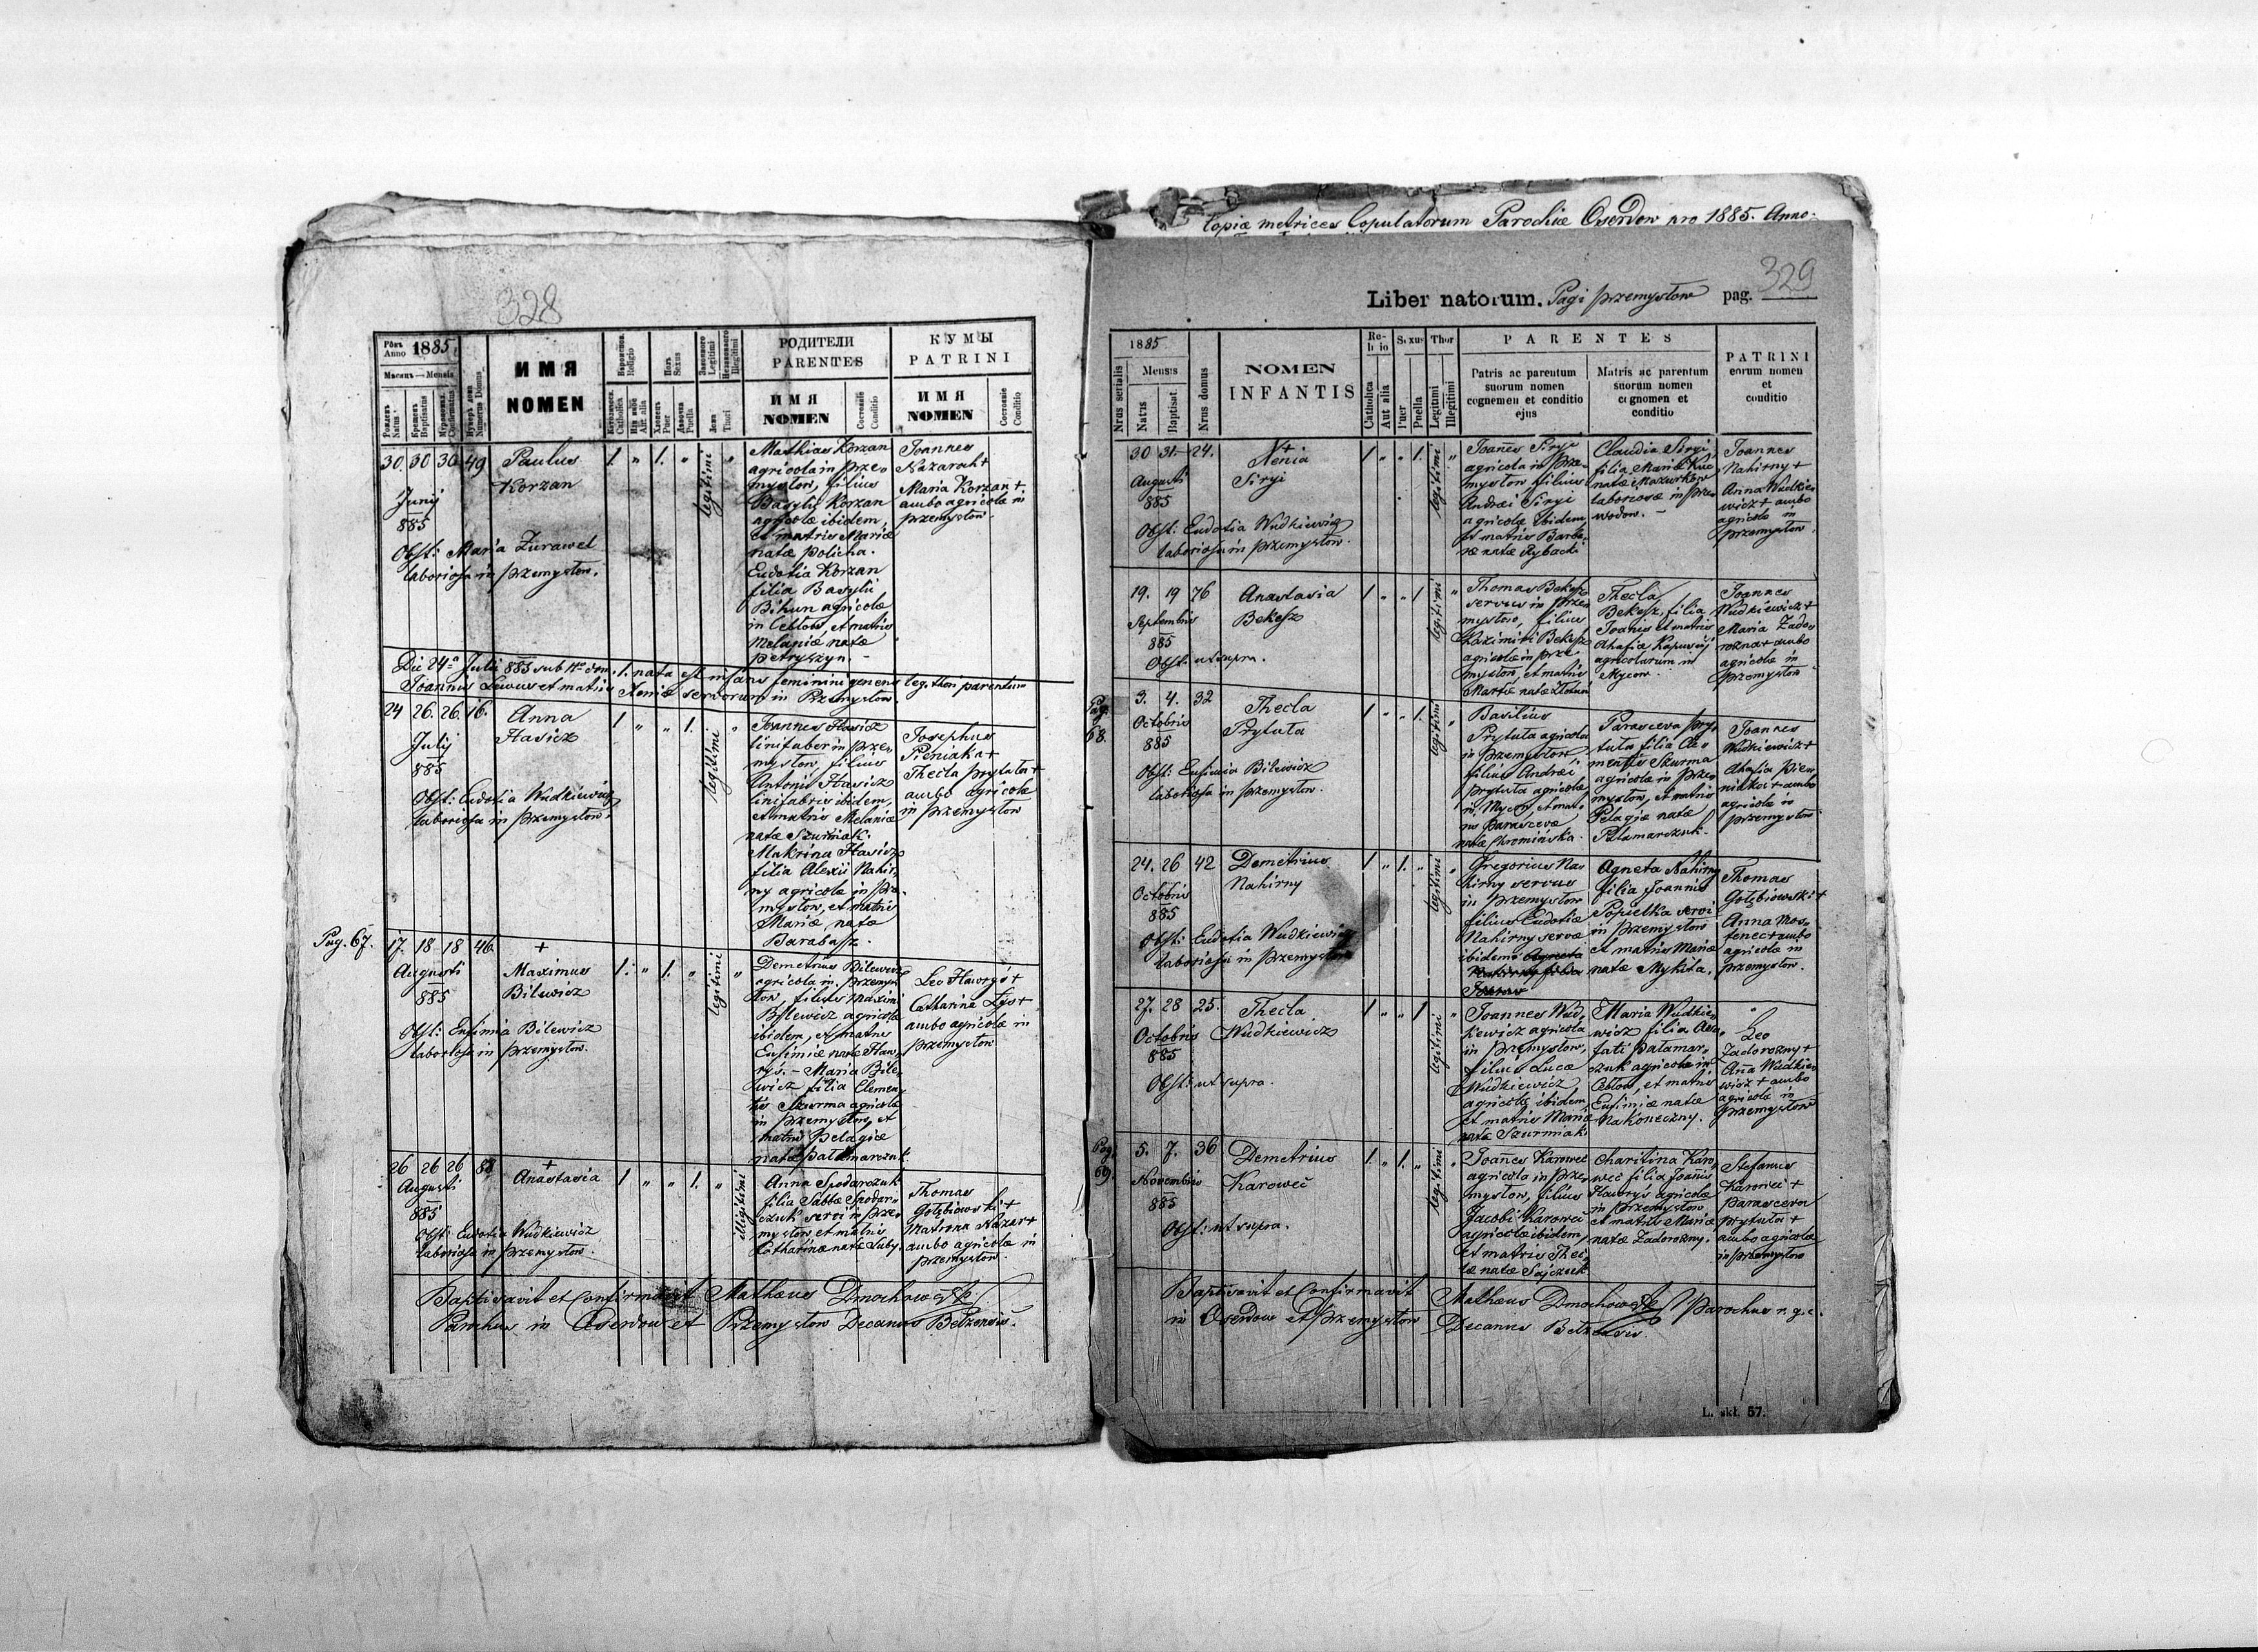 Copiæ metrices Copulatorum Parochiæ Oserdow pro 1885. Anno.
328
Рôкъ
Anno 1885
Мѣсяць — Mensis
Рожденъ
Natus
Крещенъ
Baptisatus
Мѵропомаз.
Confirmatus
Нумеръ дома
Numerus Domus
ИМЯ
NOMEN
Religio
Католическ.
Catholica
Или иное
Aut alia
Полъ
Sexus
Хлопецъ
Puer
Дѣвочка
Puella
Законного
Legitimi
Незаконного
Illegitimi
Ложа
Thori
РОДИТЕЛИ
PARENTES
ИМЯ
NOMEN
Состоянiе
Conditio
КУМЫ
PATRINI
ИМЯ
NOMEN
Состоянiе
Conditio
30. 30 30 49
Junij
885
Paulus
Korzan
1. " 1. "
legitimi "
Mathias Korzan
agricola in Prze-
mysłow, filius
Basylii Korzan
agricolæ ibidem,
et matris Mariæ
natæ Policha.
Eudotia Korzan
filia Basylii
Bihun agricolæ
in Cebłow, et matris
Melaniæ natæ
Petryszyn. –
Joannes
Nazarah +
Maria Korzan +
ambo agricolæ in
Przemysłow.
Obst: Maria Żurawel
laboriosa in Przemysłow.
Die 24a Julii 885 sub Nro dom. 1. nata est infans feminini generis leg. thori parentum
Joannis Lewus et matris Annæ servorum in Przemysłow.
24 26. 26. 16.
Julij
885
Anna
Hasicz
1 " " 1.
legitimi "
Joannes Hasicz
linifaber in Prze-
mysłow, filius
Antonii Hasicz
linifabris ibidem,
et matris Melaniæ
natæ Szurmiak.
Makrina Hasicz
filia Alexii Nahir-
ny agricolæ in Prze-
mysłow, et matris
Mariæ, natæ
Barabasz.
Josephus
Pieniaka +
Thecla Prytuła +
ambo agricolæ
in Przemysłow
Obst: Eudotia Wudkiewicz
laboriosa in Przemysłow.
Pag. 67.
17. 18 18 46.
Augusti
885
+
Maximus
Bilewicz
1. " 1. "
legitimi "
Demetrius Bilewicz
agricola in Przemys-
łow, filius Maximi
Bilewicz agricolæ
ibidem, et matris
Eufimiæ natæ Haw-
ryś. – Maria Bile-
wicz filia Clemen-
tis Szurma agricolæ
in Przemysłow, et
matris Pelagiæ
natæ Pałamarczuk.
Leo Hawryś +
Catharina Łys +
ambo agricolæ in
Przemysłow
Obst: Eufimia Bilewicz
laboriosa in Przemysłow.
26 26 26 88
Augusti
885
+
Anastasia
1 " " 1. "
illigitimi
Anna Spodarczuk
filia Sabbæ Spodar-
czuk servi in Prze-
mysłow, et matris
Catharinæ natæ Suby.
Thomas
Gołębiowski +
Matrona Nazar +
ambo agricolæ in
Przemysłow.
Obst: Eudotia Wudkiewicz
laboriosa in Przemysłow.
Baptisavit et Confirmavit Mathæus Dmochowski
Parochus in Oserdow et Przemysłow Decanus Bełzensis.
329
Liber natorum. Pagi Przemysłow pag.
Nrus serialis
1885
Mensis
Natris
Baptisat.
Nrus domus
NOMEN
INFANTIS
Religio
Catholica
Aut alia
Sexus
Puer
Puella
Thor
Legitimi
Illegitimi
PARENTES
Patris ac parentum
suorum nomen
cognomen et conditio
ejus
Matris ac parentum
suorum nomen
cognomen et
conditio
PATRINI
eorum nomen
et
conditio
30 31. 24.
Augusti
885
+
Xenia
Siryi
1 " " 1.
legitimi "
Joannes Siryi
agricola in Prze-
mysłow filius
Andrei Siryi
agricolæ ibidem,
et matris Barba-
ræ natæ Rybacki
Claudia Siryi,
filia Mariæ Kuc
natæ Mazurków
laboriosæ in Prze-
wodow. –
Joannes
Nahirny +
Anna Wudkie-
wicz + ambo
agricolæ in
Przemysłow.
Obst: Eudotia Wudkiewicz
laboriosa in Przemysłow.
19. 19 76
Septembris
885
Anastasia
Bekesz
1 " " 1
legitimi "
Thomas Bekesz
servus in Prze-
mysłow, filius
Kazimiri Bekesz
agricolæ in Prze-
mysłow, et matris
Thecla
Bekesz, filia
Joanis et matris
Ahafia Kapuścij
agricolarum in
Mycow.
Joannes
Wudkiewicz +
Maria Zado-
rozna + ambo
agricolæ in
Przemysłow
Obst: ut supra.
Pag. 68.
3. 4. 32
Octobris
885
Thecla
Prytuła
1 " " 1.
legitimi "
Basilius
Prytuła agricola
in Przemysłow
filius Andrei
Prytuła agricolæ
in Mycow, et mat-
ris Parascevæ
natæ Chromińska.
Parasceva Pry-
tuła filia Cle-
mentis Szurma
agricolæ in Prze-
mysłow, et matris
Pelagiæ natæ
Pałamarczuk.
Joannes
Wudkiewicz +
Ahafia Pien-
ambo
agricolæ in
Przemysłow
Obst: Eufimia Bilewicz
laboriosa in Przemysłow.
24. 26 42
Octobris
885
Demetrius
Nahirny
1 " 1. "
legitimi "
Gregorius Na-
hirny servus
in Przemysłow
filius Eudotiæ
Nahirny servæ
ibidem.
Agneta Nahirny
filia Joannis
Popielka servi
in Przemysłow
et matris Mariæ
natæ Mykita.
Thomas
Gołębiowski +
Anna Mos-
fenec + ambo
agricolæ in
Przemysłow.
Obst: Eudotia Wudkiewicz
laboriosa in Przemysłow
27. 28 25.
Octobris
885
Thecla
Wudkiewicz
1 " " 1
legitimi "
Joannes Wud-
kewicz agricola
in Przemysłow,
filius Lucæ
Wudkiewicz
agricolæ ibidem,
et matris Mariæ
natæ Szurmiak
Maria Wudkie-
wicz filia
Pałamar-
czuk agricolæ in
Cebłow, et matris
Eufimiæ natæ
Nakoneczny.
Leo
Zadorozny +
Anna Wudkie-
wicz + ambo
agricolæ in
Przemysłow
Obst: ut supra.
Pag. 69.
5. 7. 36
Novembris
885
Demetrius
Karoweć
1. " 1. "
legitimi "
Joannes Karoweć
agricola in Prze-
mysłow, filius
Jacobi Karoweć
agricolæ ibidem,
et matris Thec-
læ natæ Sajczuk
Charitina Karo-
weć filia Joannis
Hawryś agricolæ
in Przemysłow
et matris Mariæ
natæ Zadorozny.
Stefanus
Karoweć +
Parasceva
Prytuła +
ambo agricolæ
in Przemysłow
Obst: ut supra.
Baptisavit et Confirmavit Mathæus Dmochowski Parochus r. g. c.
in Oserdow et Przemysłow Decanus Bełzensis.
L. skł. 57.